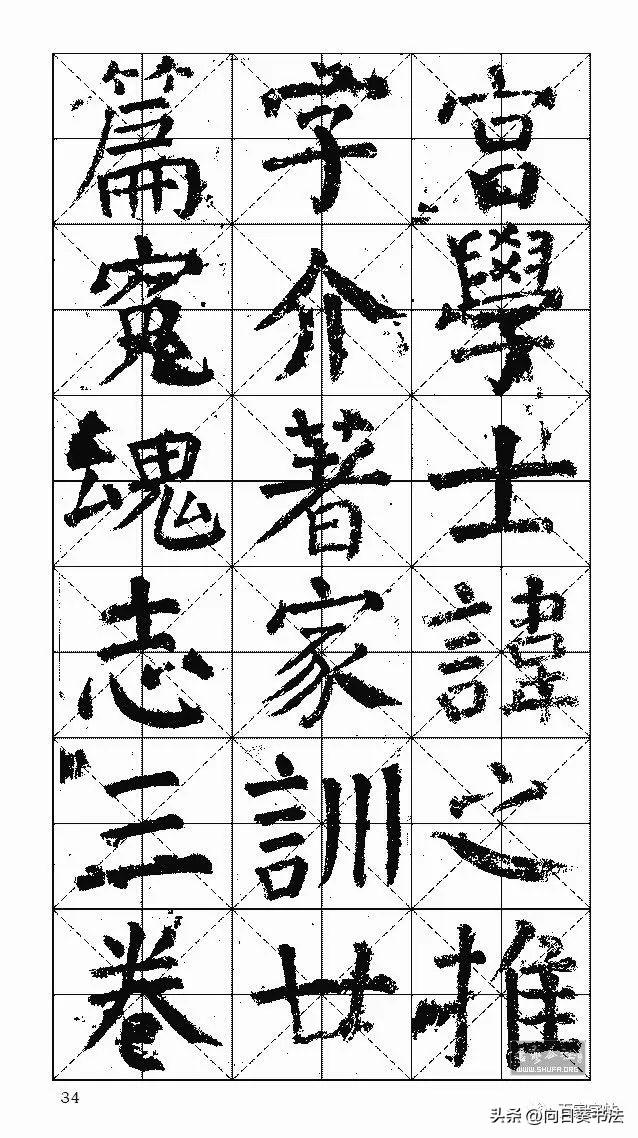 宫學士諱之推
字介著家訓廿
篇寃魂志三卷
34
WWW.SHUFA.ORG
头条 @向日葵书法